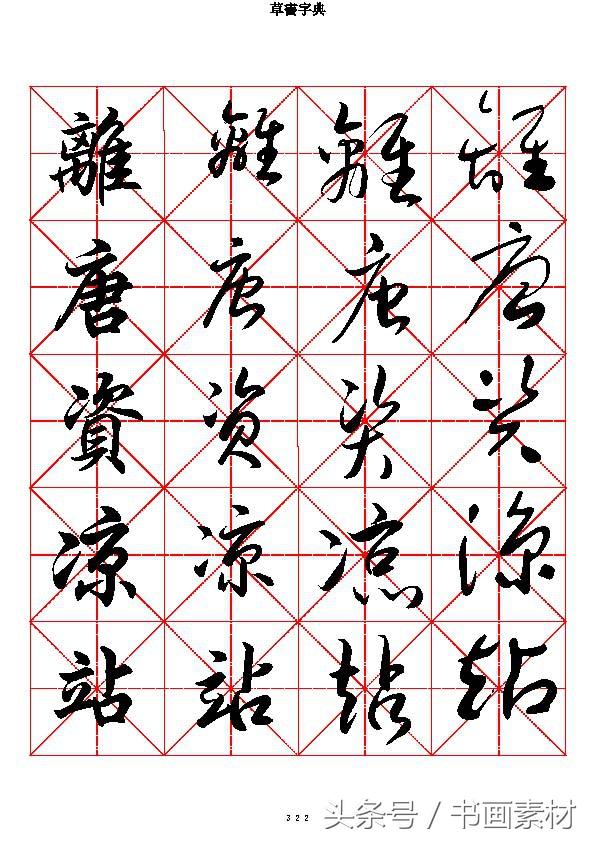 草書字典
離離離離
唐唐唐唐
資資資資
凉凉凉凉
站站站站
322
头条号 / 书画素材